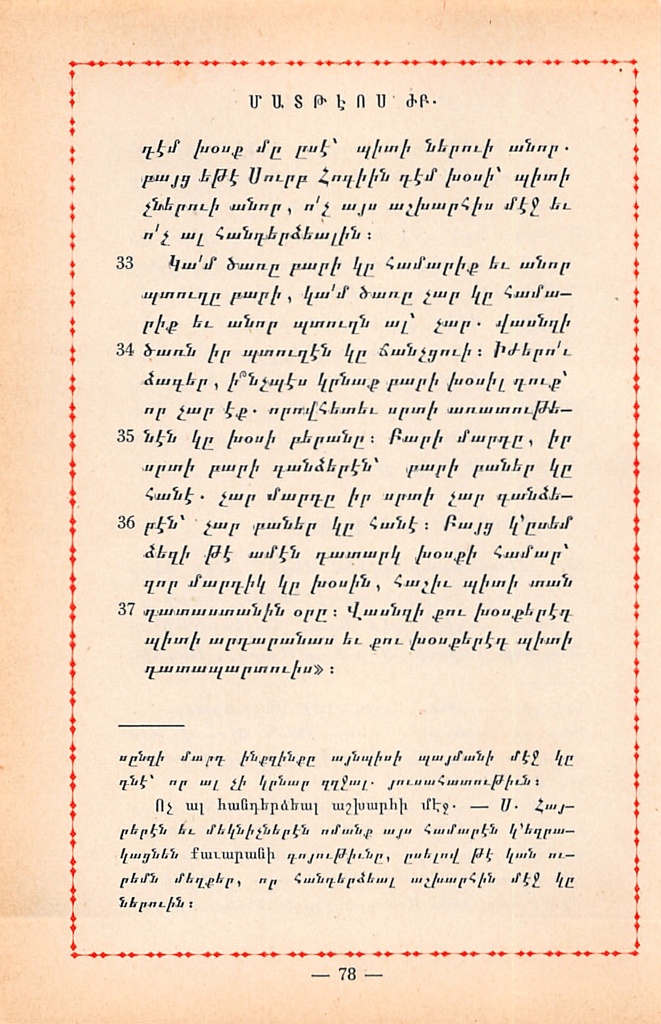 ՄԱՏԹԷՈՍ ԺԲ.
դէմ խօսք մը ըսէ՝ պիտի ներուի անոր.
բայց եթէ Սուրբ Հոգիին դէմ խօսի՝ պիտի
չներուի անոր, ո՛չ այս աշխարհիս մէջ եւ
ո՛չ ալ հանդերձեալին։
33 Կա՛մ ծառը բարի կը համարիք եւ անոր
պտուղը բարի, կա՛մ ծառը չար կը համա—
րիք եւ անոր պտուղն ալ՝ չար. վասնզի
34 ծառն իր պտուղէն կը ճանչցուի։ Իժերո՛ւ
ձագեր, ի՞նչպէս կրնաք բարի խօսիլ դուք՝
որ չար էք. որովհետեւ սրտի առատութե—
35 նէն կը խօսի բերանը։ Բարի մարդը, իր
սրտի բարի գանձերէն՝ բարի բաներ կը
հանէ. չար մարդը իր սրտի չար գանձե—
36 րէն՝ չար բաներ կը հանէ։ Բայց կ՚ըսեմ
ձեզի թէ ամէն դատարկ խօսքի համար՝
զոր մարդիկ կը խօսին, հաշիւ պիտի տան
37 դատաստանին օրը։ Վասնզի քու խօսքերէդ
պիտի արդարանաս եւ քու խօսքերէդ պիտի
դատապարտուիս»։
սընզի մարդ ինքզինքը այնպիսի պայմանի մէջ կը
դնէ՝ որ ալ չի կրնար զղջալ. յուսահատութիւն։
Ոչ ալ հանդերձեալ աշխարհի մէջ. — Ս. Հայ—
րերէն եւ մեկնիչներէն ոմանք այս համարէն կ՚եզրա—
կացնեն քաւարանի գոյութիւնը, ըսելով թէ կան ու—
րեմն մեղքեր, որ հանդերձեալ աշխարհին մէջ կը
ներուին։
— 78 —